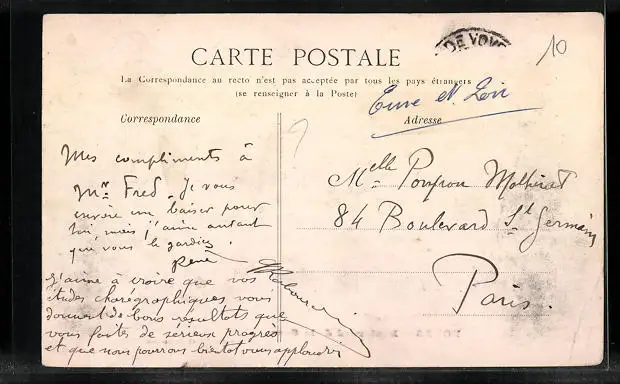 CARTE POSTALE
DE VOVE
10
La Correspondance au recto n'est pas acceptée par tous les pays étrangers
(se renseigner à la Poste)
Eure et Loir
Correspondance
Adresse
Mes compliments à
Mr Fred. Je vous
envoie un baiser pour
lui, mais j'aime autant
que vous le gardiez.
René
J'aime à croire que vos
études chorégraphiques vous
donnent de bons résultats que
vous faites de sérieux progrès
et que nous pourrons bientôt vous applaudir
Melle
84 Boulevard St Germain
Paris.